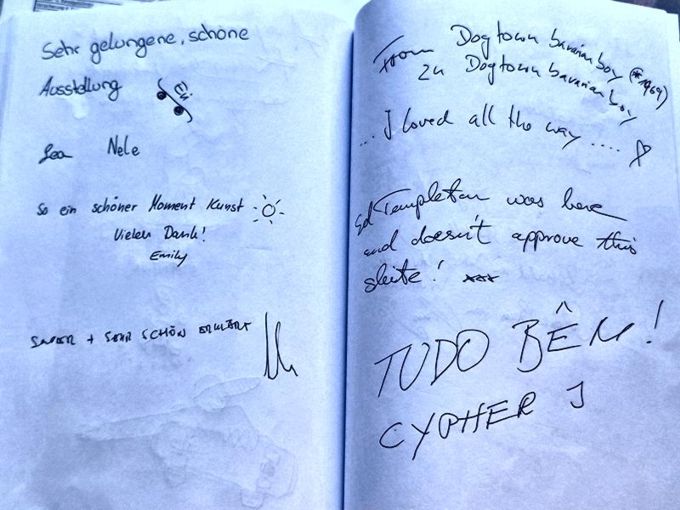 Sehr gelungene, schöne
Ausstellung
Lea Nele
So ein schöner Moment Kunst
Vielen Dank!
Emily
SUPER + SEHR SCHÖN ERKLÄRT
From Dogtown bavarian boy (*1969)
zu Dogtown bavarian boy
... I loved all the way ....
Ed Templeton was here
and doesn't approve this
TUDO BÊM!
CYPHER J